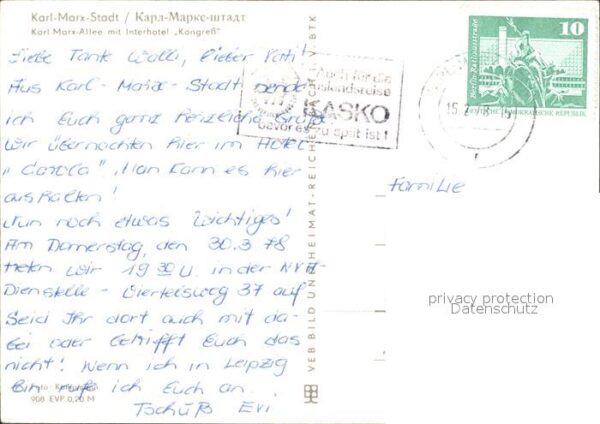 Karl-Marx-Stadt / Карл-Маркс-штадт
Karl-Marx-Allee mit Interhotel „Kongreß"
Liebe Tante Walli, lieber Pati!
Aus Karl-Marx-Stadt sende
ich Euch ganz herzliche Grüße
wir übernachten hier im Hotel
„Carola". Man kann es hier
aushalten!
Nun noch etwas wichtiges!
Am Donnerstag, den 30.3.78
treten wir 19 30 U. in der NVA-
Dienstelle - Viertelsweg 37 auf
Seid Ihr dort auch mit da-
bei oder betrifft Euch das
nicht! Wenn ich in Leipzig
bin rufe ich Euch an.
Tschüß Evi
Foto:
908 EVP 0,20 M
VEB BILD UND HEIMAT REICHENBACH I. V. BTK
Auch für die
Auslandsreise
KASKO
bevor es zu spät ist!
15.2
Berlin, Rathausstraße
10
DEUTSCHE DEMOKRATISCHE REPUBLIK
Familie
privacy protection
Datenschutz